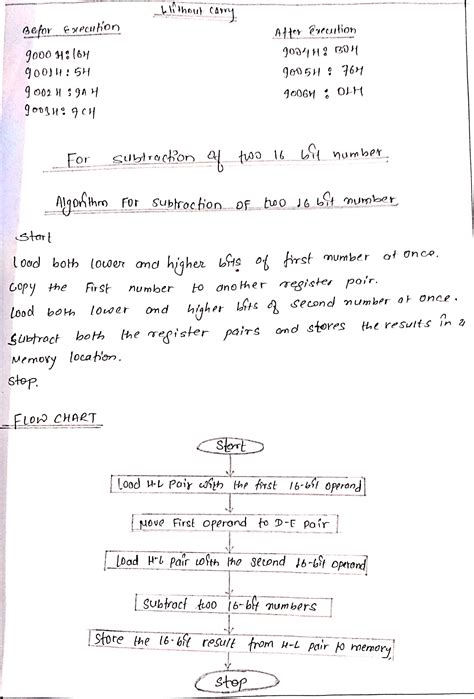 Without Carry
Befor Execution
After Execution
9000 H : 16H
9001H : 5H
9002 H : 9A H
9003H : 9CH
9004H : B0H
9005H : 76H
9006H : 01H
For subtraction of two 16 bit number.
Algorithm For subtraction OF two 16 bit number
Start
Load both lower and higher bits of first number at once.
Copy the First number to another register pair.
Load both lower and higher bits of second number at once.
Subtract both the register pairs and stores the results in a
Memory location.
Stop.
FLOW CHART
Start
Load H-L Pair with the first 16-bit operand
Move First operand to D-E pair
Load H-L pair with the second 16-bit operand
Subtract two 16-bit numbers
Store the 16-bit result from H-L pair to memory
Stop